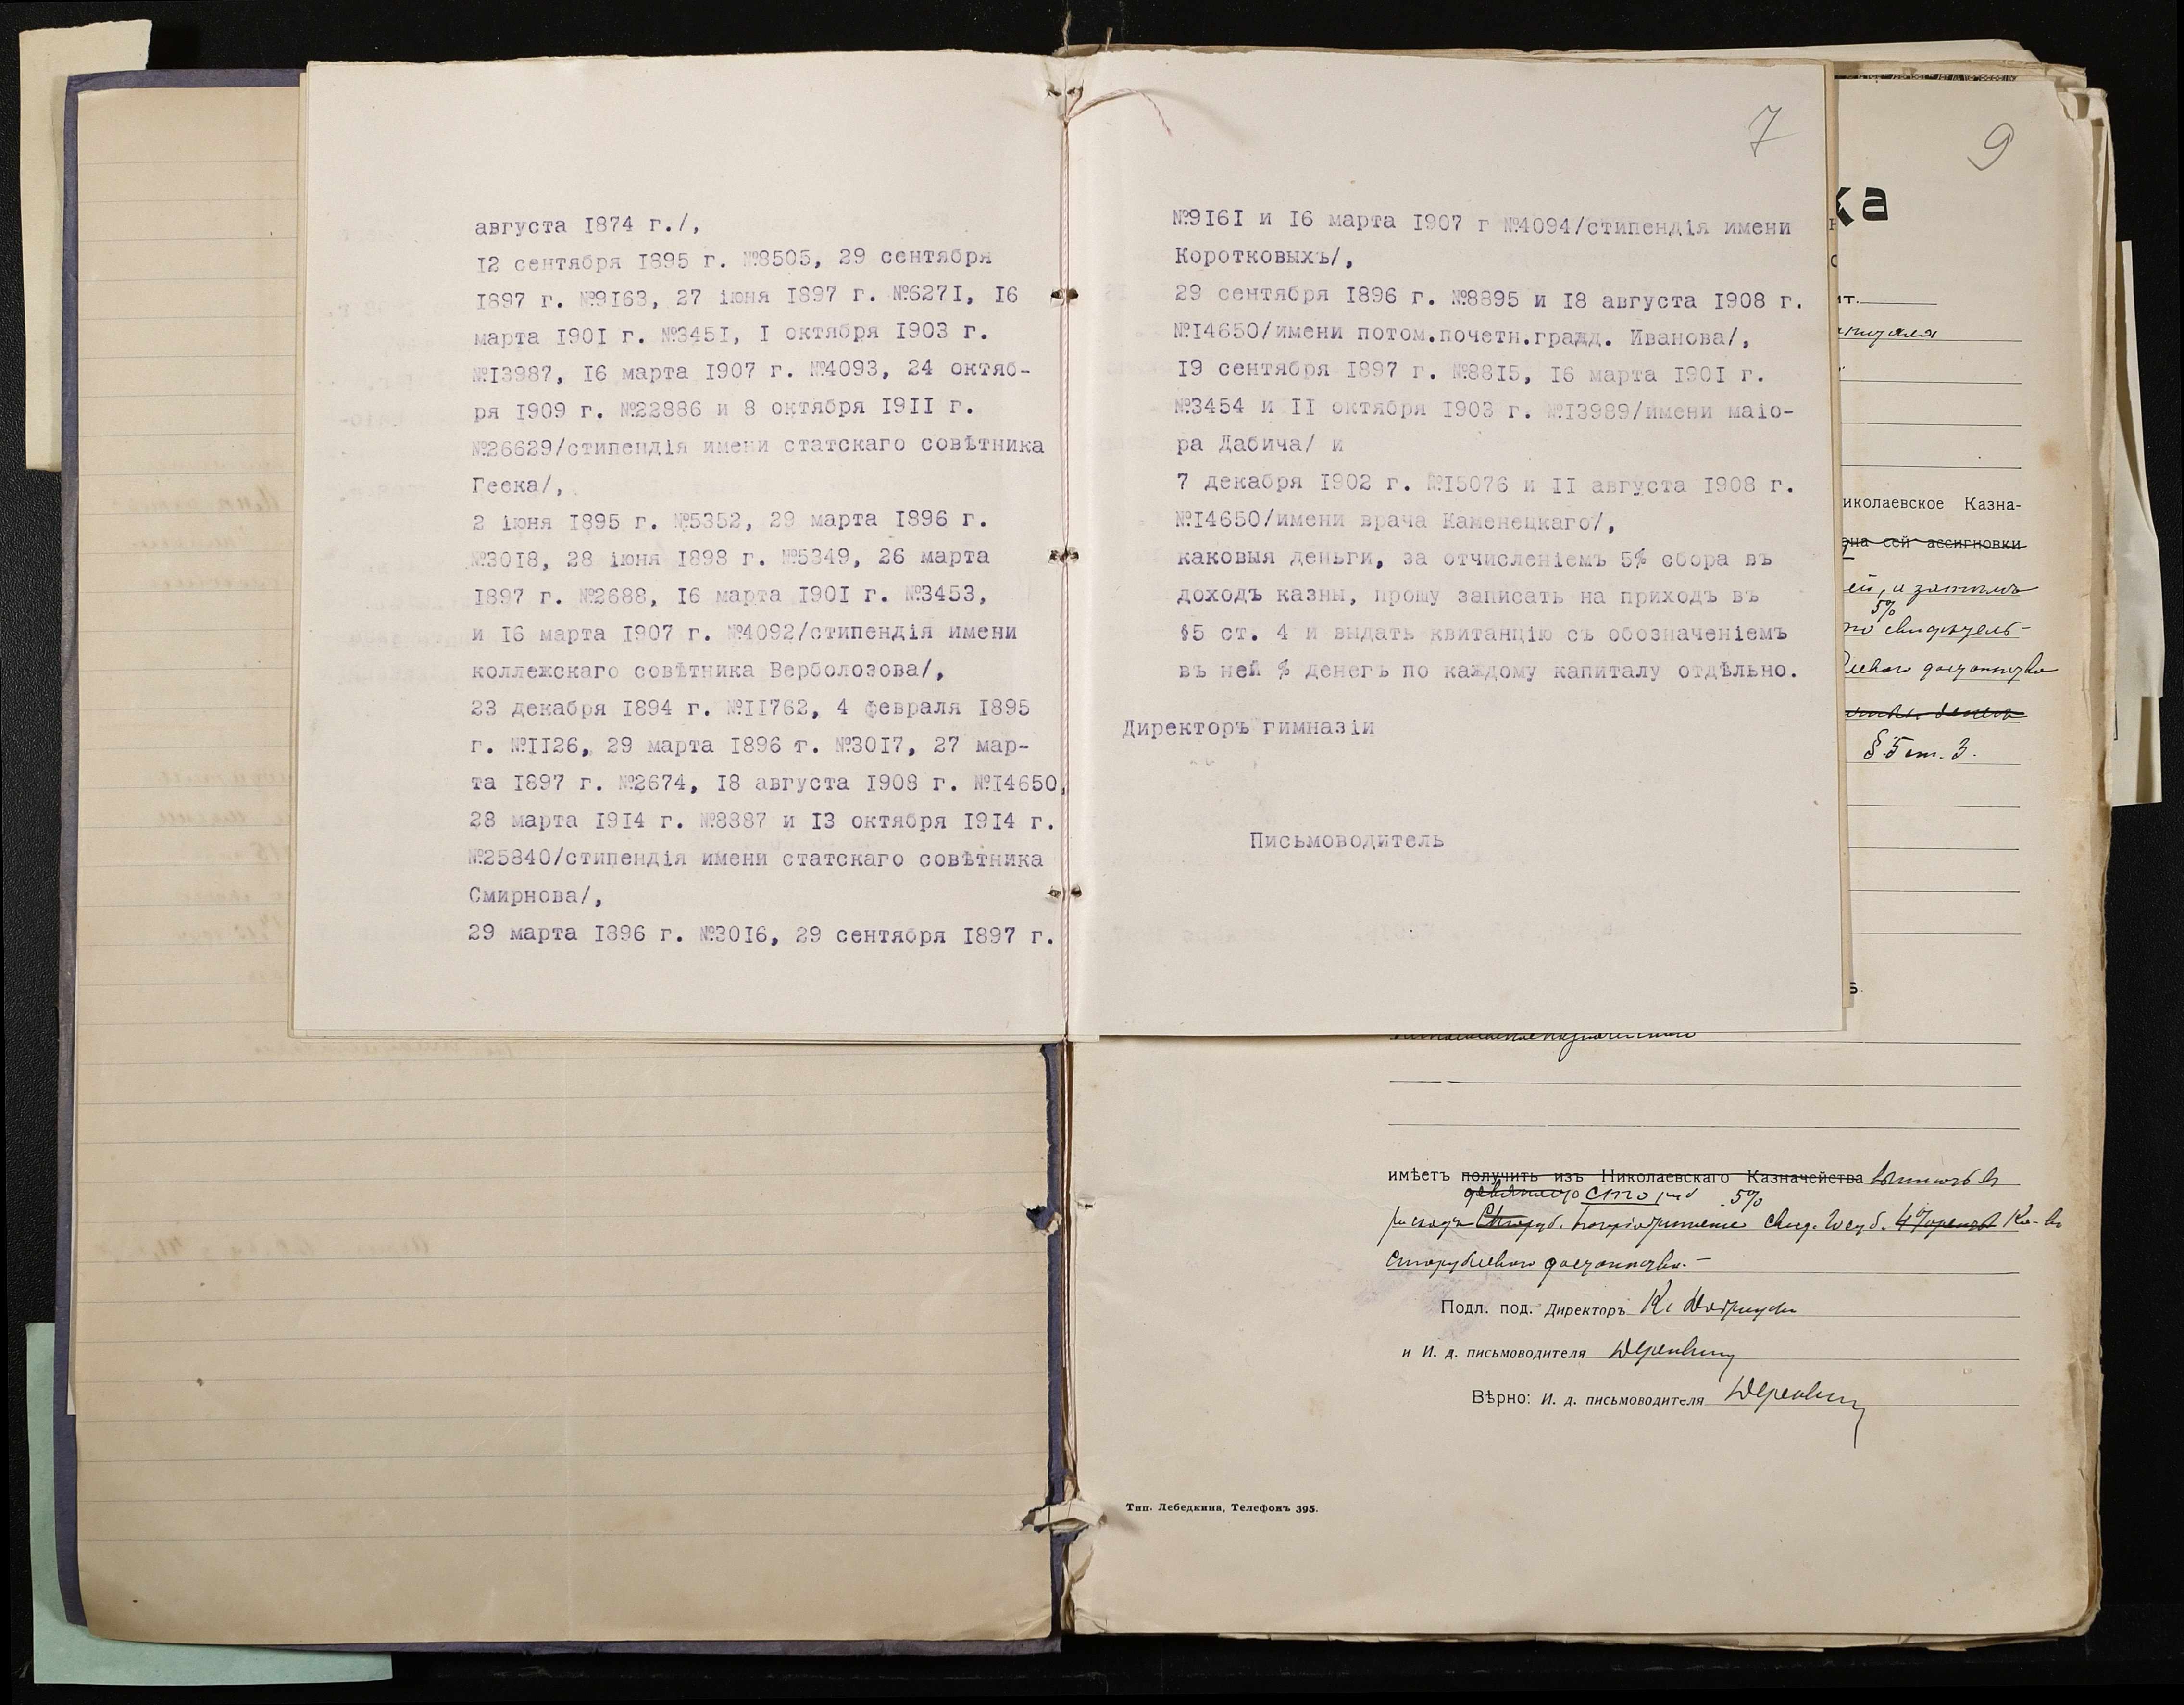 августа 1874 г./,
12 сентября 1895 г. №8505, 29 сентября
1897 г. №9163, 27 iюня 1897 г. №6271, 16
марта 1901 г. №3451, 1 октября 1903 г.
№13987, 16 марта 1907 г. №4093, 24 октяб-
ря 1909 г. №22886 и 8 октября 1911 г.
№26629/стипендiя имени статскаго совѣтника
Геека/,
2 iюня 1895 г. №5352, 29 марта 1896 г.
№3018, 28 iюня 1898 г. №5349, 26 марта
1897 г. №2688, 16 марта 1901 г. №3453,
и 16 марта 1907 г. №4092/стипендiя имени
коллежскаго совѣтника Верболозова/,
23 декабря 1894 г. №11762, 4 февраля 1895
г. №1126, 29 марта 1896 г. №3017, 27 мар-
та 1897 г. №2674, 18 августа 1908 г. №14650,
28 марта 1914 г. №8887 и 13 октября 1914 г.
№25840/стипендiя имени статскаго совѣтника
Смирнова/,
29 марта 1896 г. №3016, 29 сентября 1897 г.
7
№9161 и 16 марта 1907 г №4094/стипендiя имени
Коротковыхъ/,
29 сентября 1896 г. №8895 и 18 августа 1908 г.
№14650/имени потом.почетн.гражд. Иванова/,
19 сентября 1897 г. №8815, 16 марта 1901 г.
№3454 и 11 октября 1903 г. №13989/имени маiо-
ра Дабича/ и
7 декабря 1902 г. №15076 и 11 августа 1908 г.
№14650/имени врача Каменецкаго/,
каковыя деньги, за отчисленiемъ 5% сбора въ
доходъ казны, прошу записать на приходъ въ
§5 ст. 4 и выдать квитанцiю съ обозначенiемъ
въ ней % денегъ по каждому капиталу отдѣльно.
Директоръ гимназiи
Письмоводитель
9
ка
иколаевское Казна-
на сей ассигновки
5%
§ 5 ст. 3.
имѣетъ получить изъ Николаевскаго Казначейства
сто 5%
сторублеваго достоинства.-
Подл. под. Директоръ
и И. д. письмоводителя
Вѣрно: И. д. письмоводителя
Тип. Лебедкина, Телефонъ 395.